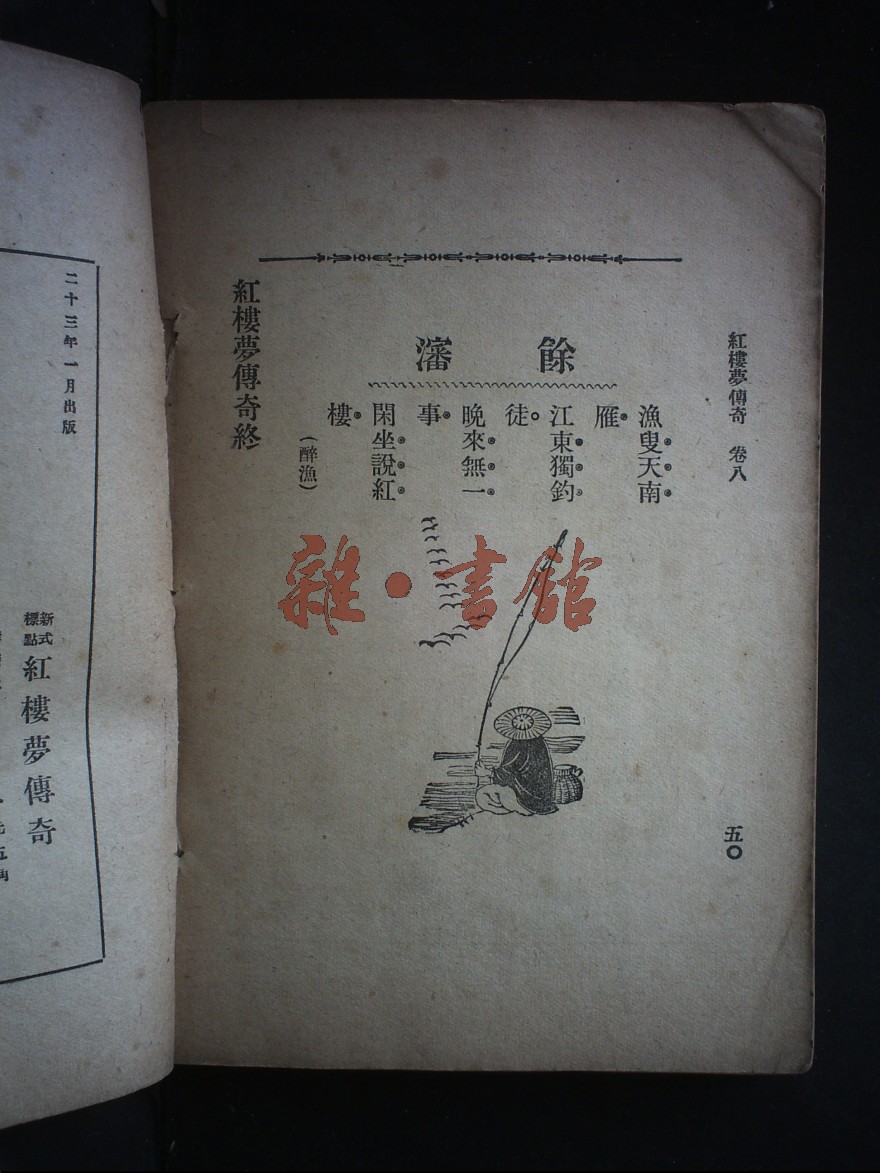 紅樓夢傳奇　卷八
五〇
餘瀋
漁叟天南
雁。
江東獨釣
徒。
晚來無一
事。
閑坐說紅
樓。
（醉漁）
紅樓夢傳奇終
雜·書館
二十三年一月出版
新式
標點
紅樓夢傳奇